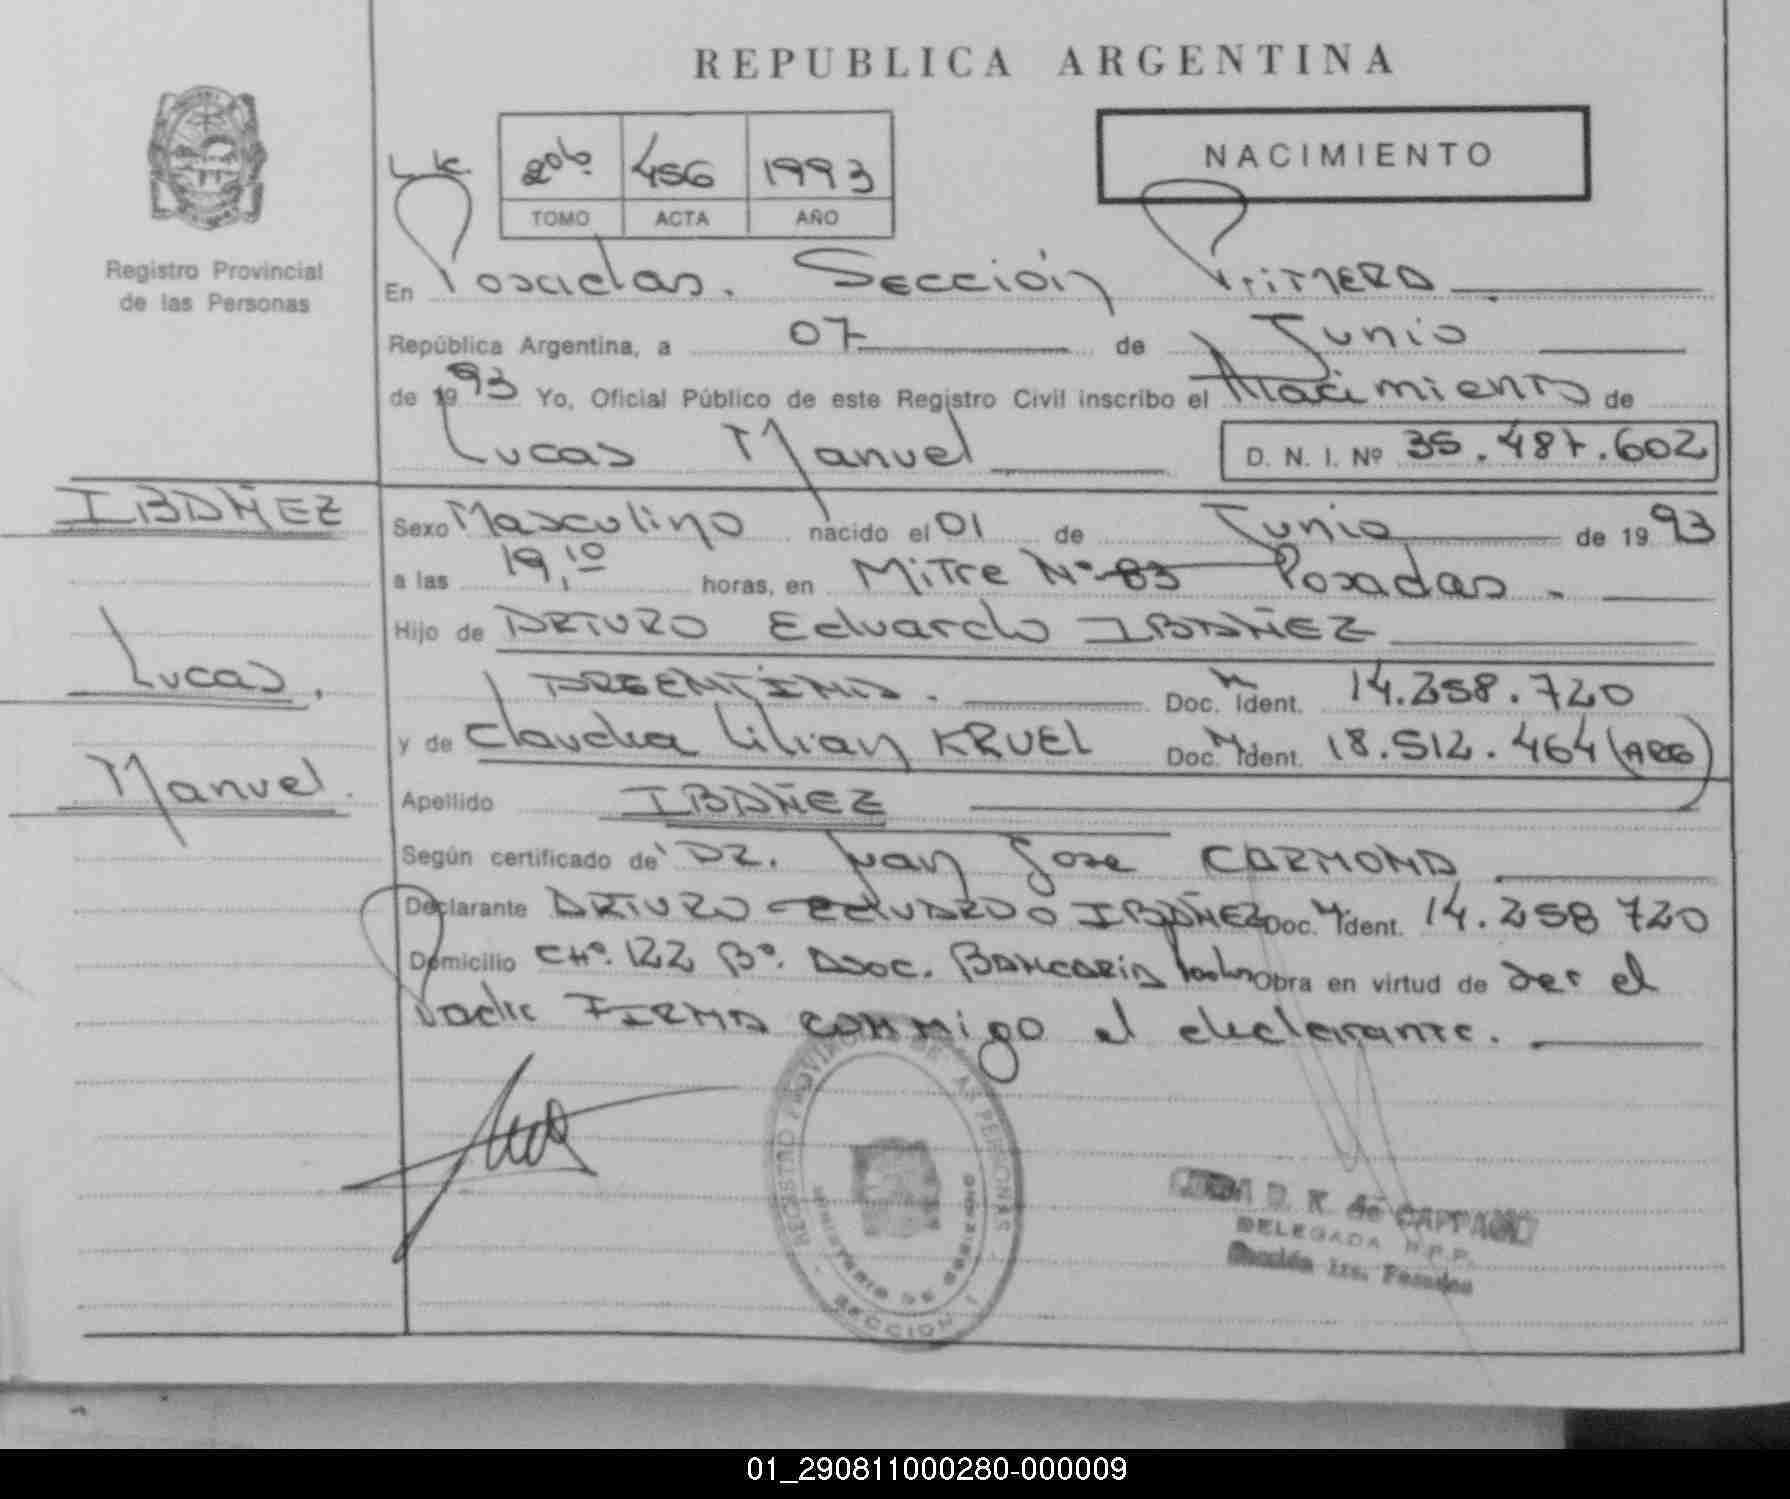 REPUBLICA ARGENTINA
NACIMIENTO
2do 456 1993
TOMO ACTA AÑO
Registro Provincial
de las Personas
En Posadas. Sección Primera
República Argentina, a 07 de Junio
de 1993 Yo, Oficial Público de este Registro Civil inscribo el Nacimiento de
Lucas Manuel D. N. I. Nº 35.487.602
IBAÑEZ
Lucas,
Manuel.
Sexo Masculino nacido el 01 de Junio de 1993
a las 19,10 horas, en Mitre Nº 83 Posadas.
Hijo de ARTURO Eduardo IBAÑEZ
ARGENTINA. Doc. Ident. 14.258.720
y de Claudia Lilian KRUEL Doc. Ident. 18.512.464 (ARG)
Apellido IBAÑEZ
Según certificado de DR. Juan Jose CARMONA
Declarante ARTURO EDUARDO IBAÑEZ Doc. Ident. 14.258 720
Domicilio CHº. 122 Bº. Asoc. BANCARIA Obra en virtud de ser el
Padre FIRMA conmigo el declarante.
REGISTRO PROVINCIAL DE LAS PERSONAS
MINISTERIO DE GOBIERNO
SECCION 1
D. K. de CAPPAGO
DELEGADA R.P.P.
Sección 1ra. Posadas
01_290811000280-000009